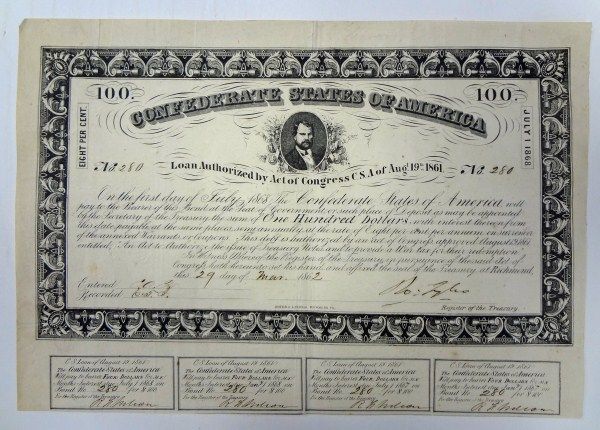 100. 100.
CONFEDERATE STATES OF AMERICA
EIGHT PER CENT.
JULY 1 1868
No. 280 No. 280
Loan Authorized by Act of Congress C.S.A of Aug. 19th 1861.
On the first day of July, 1868 The Confederate States of America will
pay to the Bearer of this Bond at the Seat of Government, or such place of Deposit as may be appointed
by the Secretary of the Treasury the sum of One Hundred Dollars, with interest thereon from
this date payable at the same places semi annually at the rate of Eight per cent per annum on surrender
of the annexed Warrants or Coupons. This debt is authorized by an act of Congress approved August 19, 1861
entitled, An Act to Authorize the Issue of Treasury Notes and to provide a War tax for their redemption
In Witness Whereof the Register of the Treasury in pursuance of the said Act of
Congress hath hereunto set his hand and affixed the seal of the Treasury at Richmond,
this 29 day of Mar. 1862
Entered
Recorded
Register of the Treasury
C.S Loan of August 19, 1861
The Confederate States of America
Will pay to bearer FOUR DOLLARS for six
Months Interest due July 1 1868 on
Bond No 280 for $100
For the Register of the Treasury
C.S Loan of August 19, 1861
The Confederate States of America
Will pay to bearer FOUR DOLLARS for six
Months Interest due Jany 1 1868 on
Bond No 280 for $100
For the Register of the Treasury
C.S Loan of August 19, 1861
The Confederate States of America
Will pay to bearer FOUR DOLLARS for six
Months Interest due
Bond No 280 for $100
For the Register of the Treasury
C.S Loan of August 19, 1861
The Confederate States of America
Will pay to bearer FOUR DOLLARS for six
Months Interest due
Bond No 280 for $100
For the Register of the Treasury